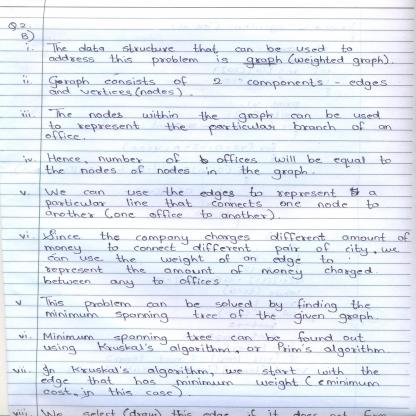 Q.2.
B)
i. The data structure that can be used to
address this problem is graph (weighted graph).
ii. Graph consists of 2 components - edges
and vertices (nodes).
iii. The nodes within the graph can be used
to represent the particular branch of an
office.
iv. Hence, number of offices will be equal to
the nodes of nodes in the graph.
v. We can use the edges to represent a
particular line that connects one node to
another (one office to another).
vi. Since the company charges different amount of
money to connect different pair of city, we
can use the weight of an edge to
represent the amount of money charged
between any to offices.
v This problem can be solved by finding the
minimum spanning tree of the given graph.
vi. Minimum spanning tree can be found out
using Kruskal's algorithm, or Prim's algorithm.
vii. In Kruskal's algorithm, we start with the
edge that has minimum weight (minimum
cost, in this case).
viii. We select (draw) this edge if it does not form